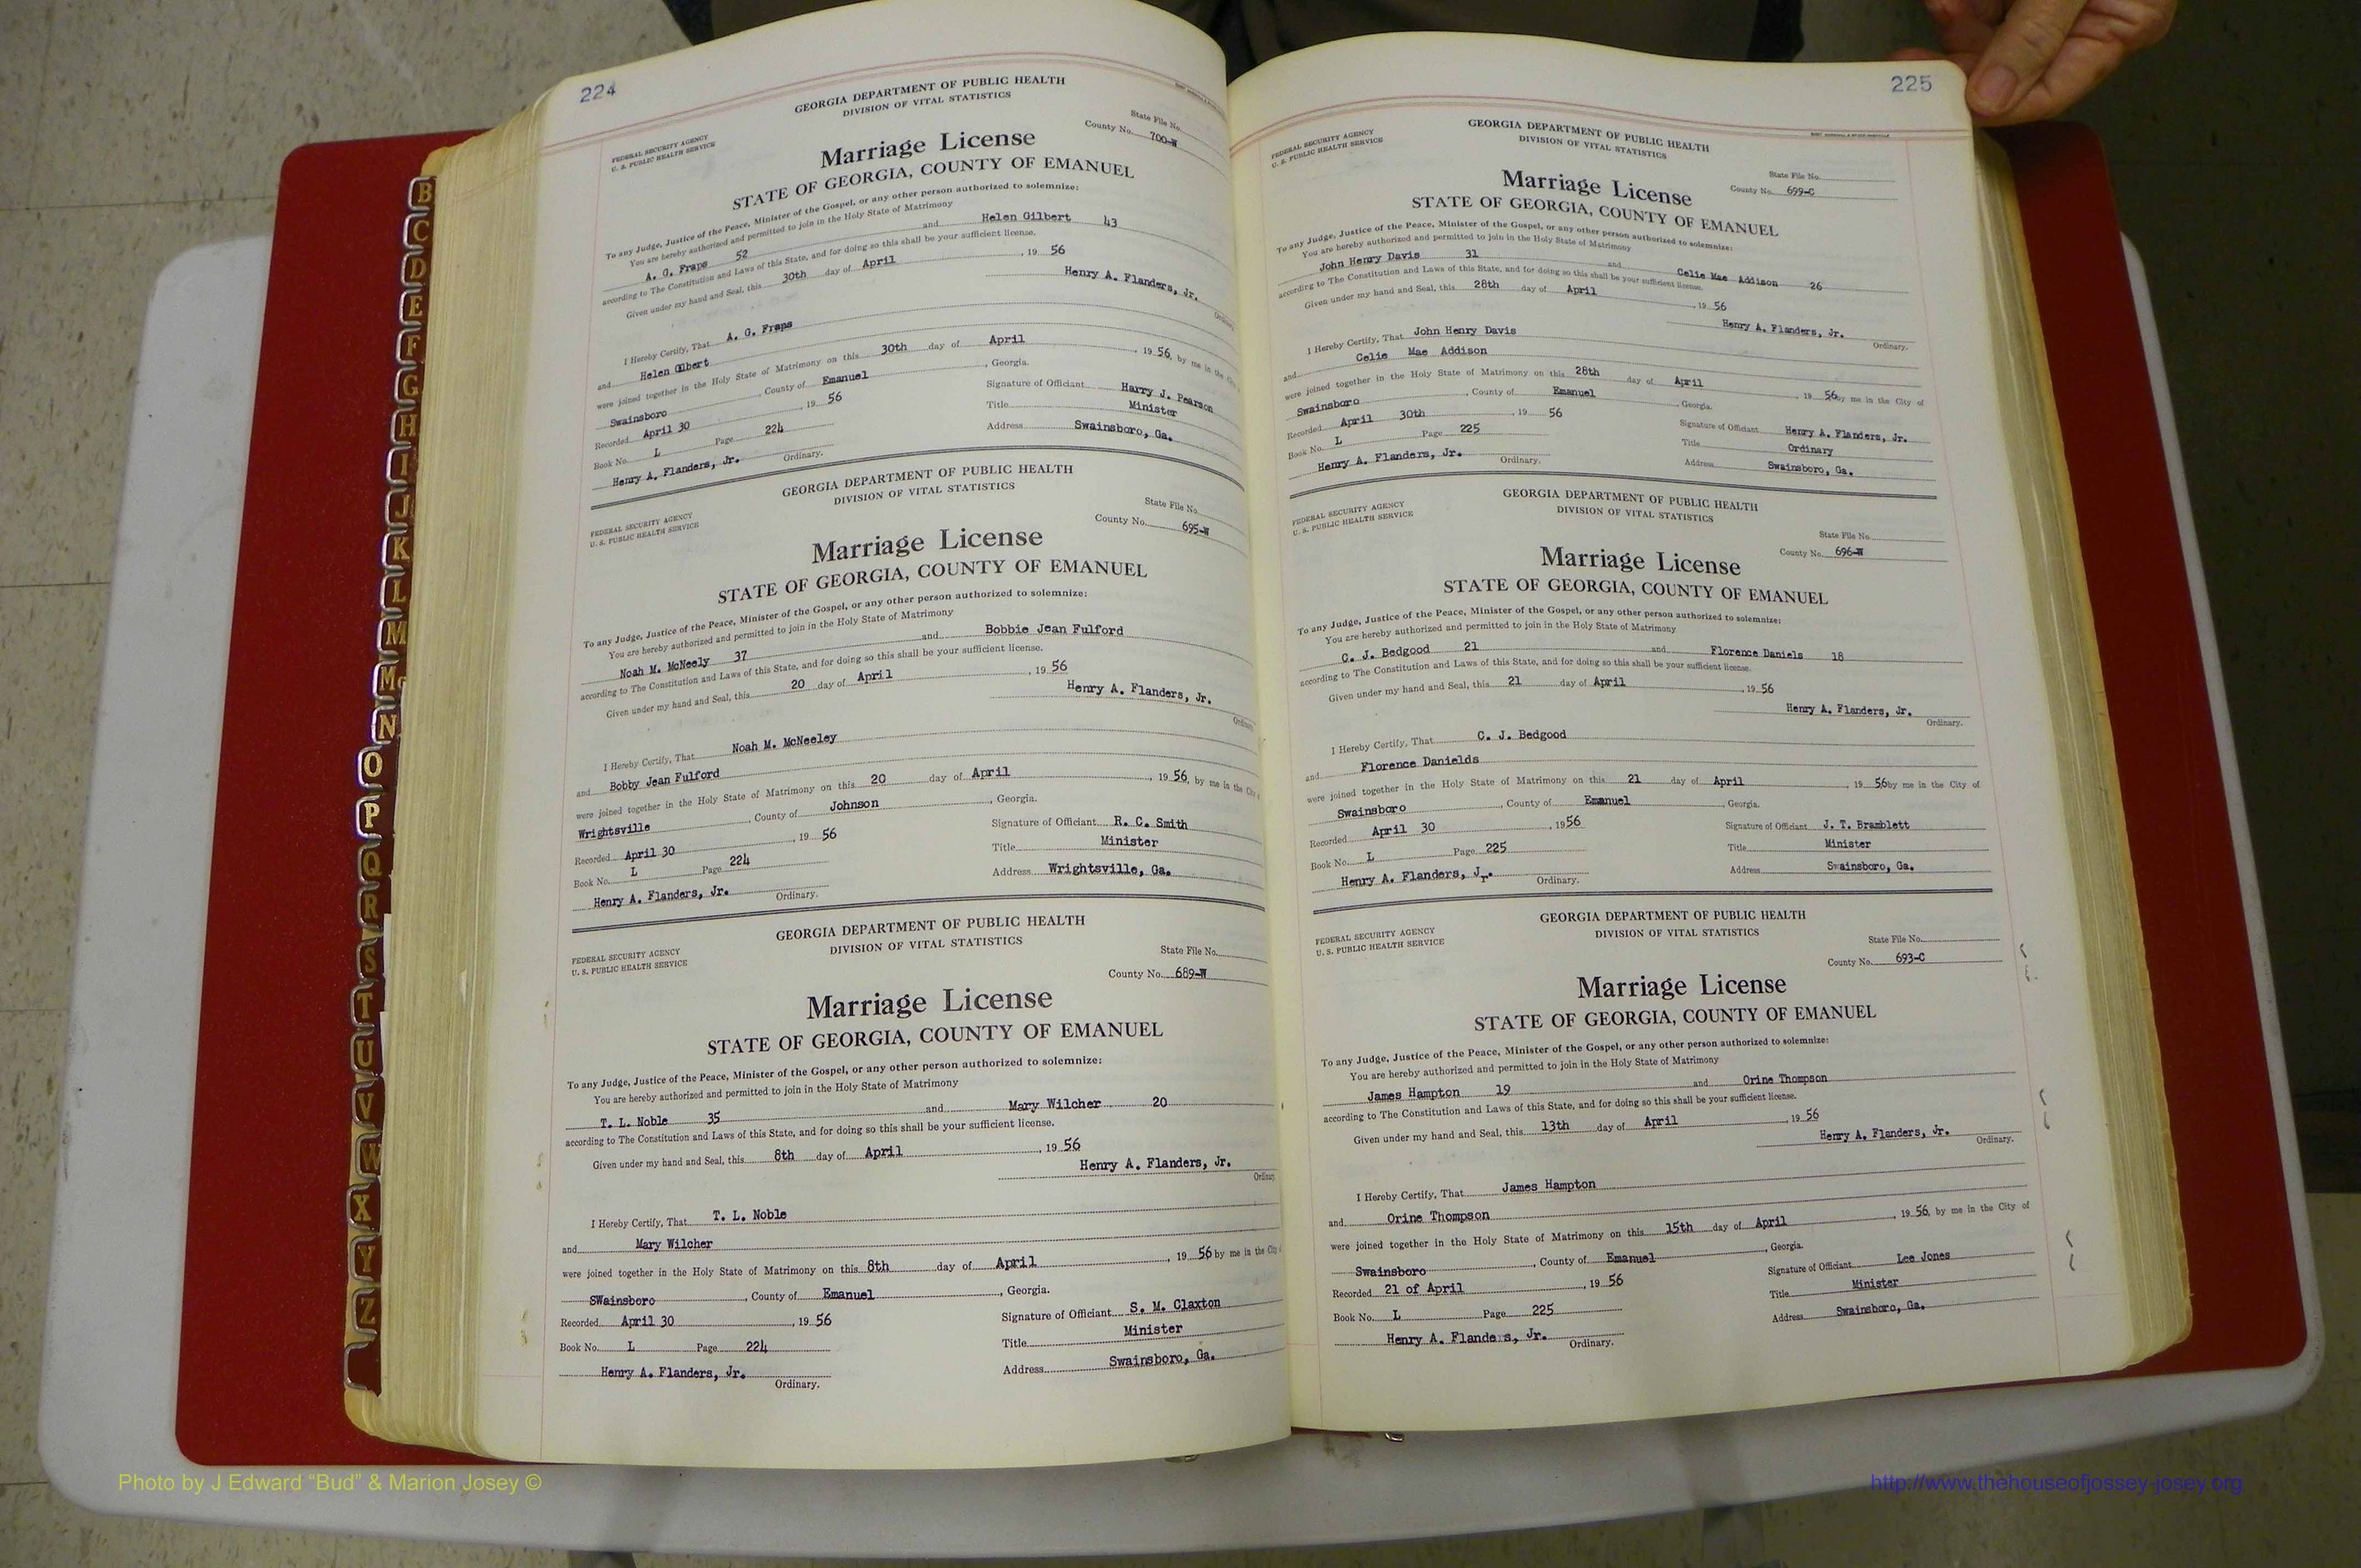 224
GEORGIA DEPARTMENT OF PUBLIC HEALTH
DIVISION OF VITAL STATISTICS
FEDERAL SECURITY AGENCY
U. S. PUBLIC HEALTH SERVICE
State File No.
County No. 700-W
Marriage License
STATE OF GEORGIA, COUNTY OF EMANUEL
To any Judge, Justice of the Peace, Minister of the Gospel, or any other person authorized to solemnize:
You are hereby authorized and permitted to join in the Holy State of Matrimony
A. G. Fraps 52 and Helen Gilbert 43
according to The Constitution and Laws of this State, and for doing so this shall be your sufficient license.
Given under my hand and Seal, this 30th day of April, 19 56
Henry A. Flanders, Jr.
Ordinary.
I Hereby Certify, That A. G. Fraps
and Helen Glbert
were joined together in the Holy State of Matrimony on this 30th day of April, 19 56, by me in the
Swainsboro, County of Emanuel, Georgia.
Recorded April 30, 19 56
Signature of Officiant Harry J. Pearson
Book No. L Page 224
Title Minister
Henry A. Flanders, Jr. Ordinary.
Address Swainsboro, Ga.
GEORGIA DEPARTMENT OF PUBLIC HEALTH
DIVISION OF VITAL STATISTICS
FEDERAL SECURITY AGENCY
U. S. PUBLIC HEALTH SERVICE
State File No.
County No. 695-W
Marriage License
STATE OF GEORGIA, COUNTY OF EMANUEL
To any Judge, Justice of the Peace, Minister of the Gospel, or any other person authorized to solemnize:
You are hereby authorized and permitted to join in the Holy State of Matrimony
Noah M. McNeely 37 and Bobbie Jean Fulford
according to The Constitution and Laws of this State, and for doing so this shall be your sufficient license.
Given under my hand and Seal, this 20 day of April, 19 56
Henry A. Flanders, Jr.
I Hereby Certify, That Noah M. McNeeley
and Bobby Jean Fulford
were joined together in the Holy State of Matrimony on this 20 day of April, 19 56, by me in the City
Wrightsville, County of Johnson, Georgia.
Recorded April 30, 19 56
Signature of Officiant R. C. Smith
Book No. L Page 224
Title Minister
Henry A. Flanders, Jr. Ordinary.
Address Wrightsville, Ga.
GEORGIA DEPARTMENT OF PUBLIC HEALTH
DIVISION OF VITAL STATISTICS
FEDERAL SECURITY AGENCY
U. S. PUBLIC HEALTH SERVICE
State File No.
County No. 689-W
Marriage License
STATE OF GEORGIA, COUNTY OF EMANUEL
To any Judge, Justice of the Peace, Minister of the Gospel, or any other person authorized to solemnize:
You are hereby authorized and permitted to join in the Holy State of Matrimony
T. L. Noble 35 and Mary Wilcher 20
according to The Constitution and Laws of this State, and for doing so this shall be your sufficient license.
Given under my hand and Seal, this 8th day of April, 19 56
Henry A. Flanders, Jr.
I Hereby Certify, That T. L. Noble
and Mary Wilcher
were joined together in the Holy State of Matrimony on this 8th day of April, 19 56 by me in the City
SWainsboro, County of Emanuel, Georgia.
Recorded April 30, 19 56
Signature of Officiant S. M. Claxton
Book No. L Page 224
Title Minister
Henry A. Flanders, Jr.
Ordinary.
Address Swainsboro, Ga.
225
GEORGIA DEPARTMENT OF PUBLIC HEALTH
DIVISION OF VITAL STATISTICS
FEDERAL SECURITY AGENCY
U. S. PUBLIC HEALTH SERVICE
State File No.
County No. 699-C
Marriage License
STATE OF GEORGIA, COUNTY OF EMANUEL
To any Judge, Justice of the Peace, Minister of the Gospel, or any other person authorized to solemnize:
You are hereby authorized and permitted to join in the Holy State of Matrimony
John Henry Davis 31 and Celie Mae Addison 26
according to The Constitution and Laws of this State, and for doing so this shall be your sufficient license.
Given under my hand and Seal, this 28th day of April, 19 56
Henry A. Flanders, Jr.
Ordinary.
I Hereby Certify, That John Henry Davis
and Celie Mae Addison
were joined together in the Holy State of Matrimony on this 28th day of April, 19 56 by me in the City of
Swainsboro, County of Emanuel, Georgia.
Recorded April 30th, 19 56
Signature of Officiant Henry A. Flanders, Jr.
Book No. L Page 225
Title Ordinary
Henry A. Flanders, Jr. Ordinary.
Address Swainsboro, Ga.
GEORGIA DEPARTMENT OF PUBLIC HEALTH
DIVISION OF VITAL STATISTICS
FEDERAL SECURITY AGENCY
U. S. PUBLIC HEALTH SERVICE
State File No.
County No. 696-W
Marriage License
STATE OF GEORGIA, COUNTY OF EMANUEL
To any Judge, Justice of the Peace, Minister of the Gospel, or any other person authorized to solemnize:
You are hereby authorized and permitted to join in the Holy State of Matrimony
C. J. Bedgood 21 and Florence Daniels 18
according to The Constitution and Laws of this State, and for doing so this shall be your sufficient license.
Given under my hand and Seal, this 21 day of April, 19 56
Henry A. Flanders, Jr.
Ordinary.
I Hereby Certify, That C. J. Bedgood
and Florence Danields
were joined together in the Holy State of Matrimony on this 21 day of April, 19 56 by me in the City of
Swainsboro, County of Emanuel, Georgia.
Recorded April 30, 19 56
Signature of Officiant J. T. Bramblett
Book No. L Page 225
Title Minister
Henry A. Flanders, Jr. Ordinary.
Address Swainsboro, Ga.
GEORGIA DEPARTMENT OF PUBLIC HEALTH
DIVISION OF VITAL STATISTICS
FEDERAL SECURITY AGENCY
U. S. PUBLIC HEALTH SERVICE
State File No.
County No. 693-C
Marriage License
STATE OF GEORGIA, COUNTY OF EMANUEL
To any Judge, Justice of the Peace, Minister of the Gospel, or any other person authorized to solemnize:
You are hereby authorized and permitted to join in the Holy State of Matrimony
James Hampton 19 and Orine Thompson
according to The Constitution and Laws of this State, and for doing so this shall be your sufficient license.
Given under my hand and Seal, this 13th day of April, 19 56
Henry A. Flanders, Jr.
Ordinary.
I Hereby Certify, That James Hampton
and Orine Thompson
were joined together in the Holy State of Matrimony on this 15th day of April, 19 56, by me in the City of
Swainsboro, County of Emanuel, Georgia.
Recorded 21 of April, 19 56
Signature of Officiant Lee Jones
Book No. L Page 225
Title Minister
Henry A. Flanders, Jr. Ordinary.
Address Swainsboro, Ga.
B
C
D
E
F
G
H
I
J
K
L
M
Mc
N
O
P
Q
R
S
T
U
V
W
X
Y
Z
Photo by J Edward “Bud” & Marion Josey ©
http://www.thehouseofjossey-josey.org